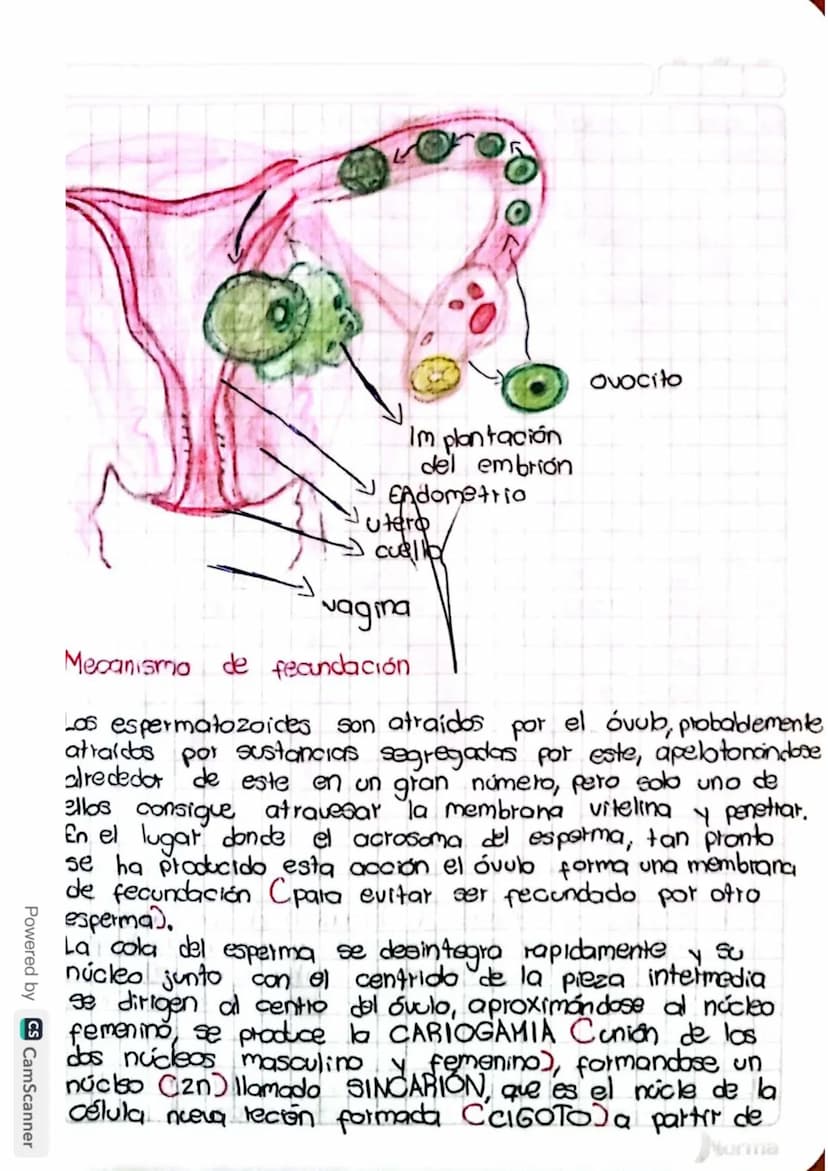 ovocito
Implantación
del embrión
Endometrio
utero
cuello
vagina
Mecanismo de fecundación
Los espermatozoides son atraídos por el óvulo, probablemente
atraídos por sustancias segregadas por este, apelotonándose
alrededor de este en un gran número, pero solo uno de
ellos consigue atravesar la membrana vitelina y penetrar.
En el lugar donde el acrosoma del esperma, tan pronto
se ha producido esta acción el óvulo forma una membrana
de fecundación (para evitar ser fecundado por otro
esperma).
La cola del esperma se desintegra rapidamente y su
núcleo junto con el centriolo de la pieza intermedia
se dirigen al centro del óvulo, aproximándose al núcleo
femenino, se produce la CARIOGAMIA (unión de los
dos núcleos masculino y femenino), formandose un
núcleo (2n) llamado SINCARIÓN, que es el núcle de la
célula nueva recién formada (CIGOTO) a partir de
Powered by CS CamScanner
Norma